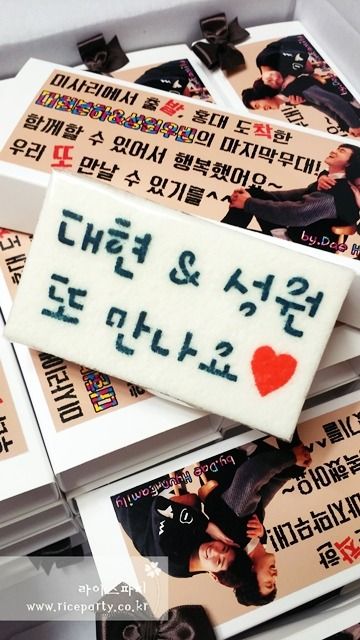 미사리에서 출발, 홍대 도착한
대현준하&성원우빈의 마지막무대!
함께할 수 있어서 행복했어요~
우리 또 만날 수 있기를^^
by.Dae H
대현 & 성원
또 만나요
by.Dae HyunFamily
라이스파티
www.riceparty.co.kr